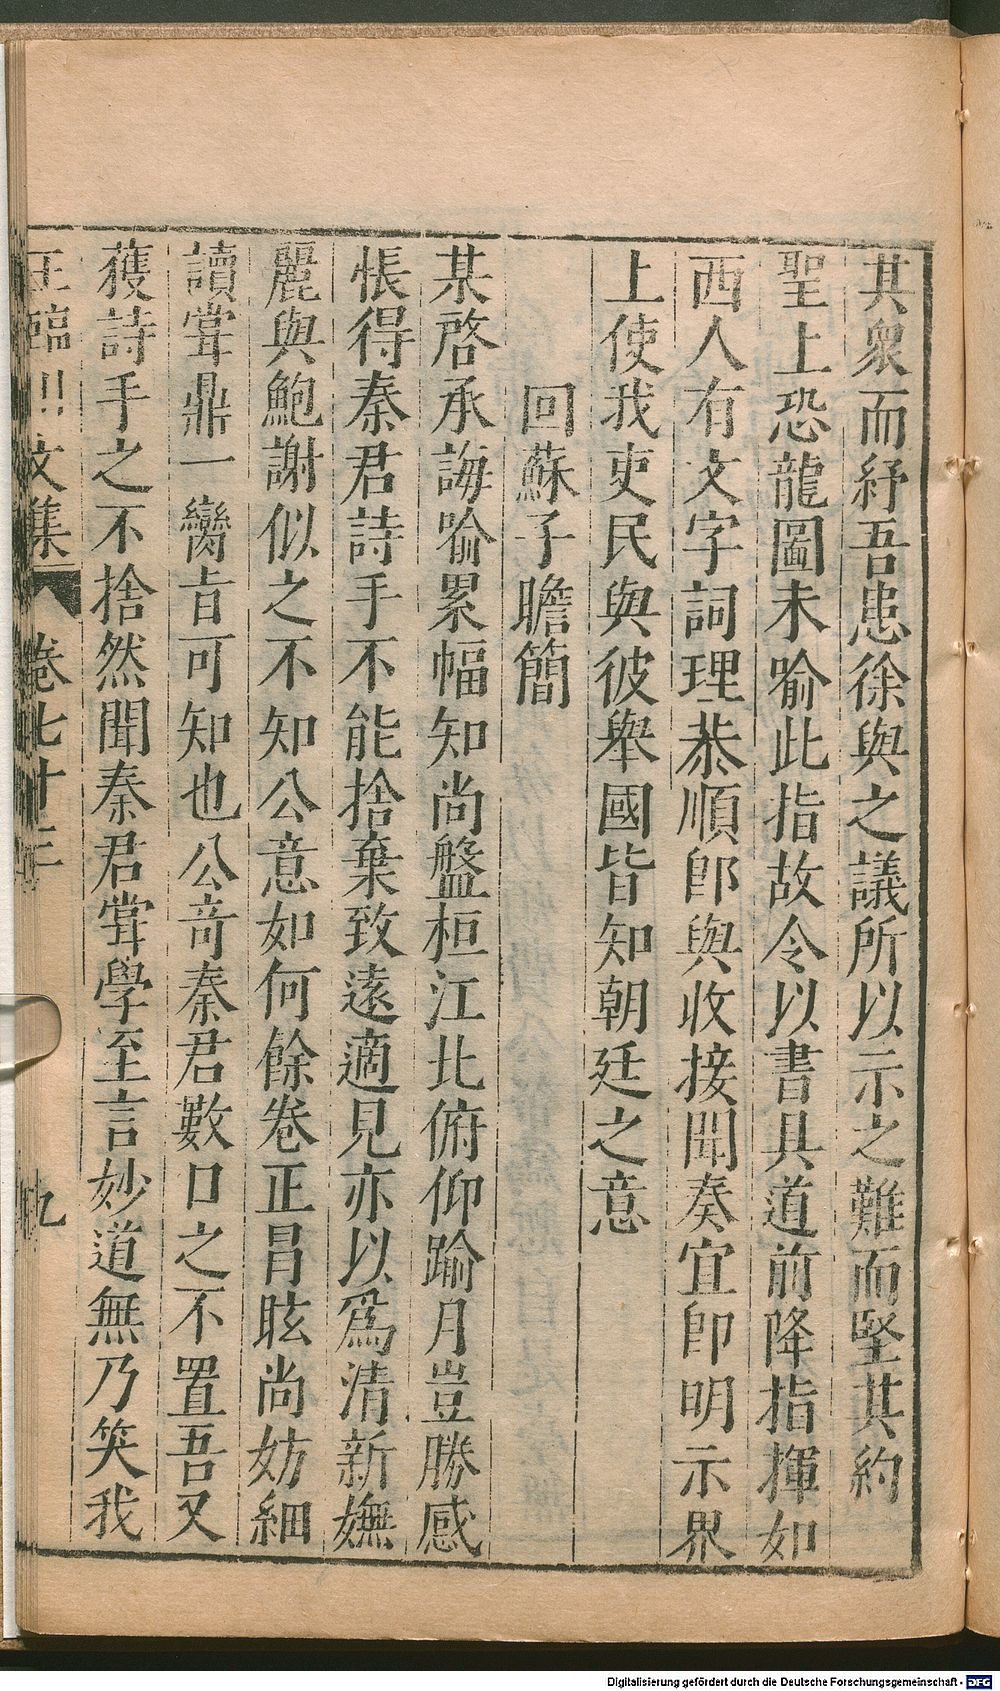 其衆而紓吾患徐與之議所以示之難而堅其約
聖上恐龍圖未喻此指故令以書具道前降指揮如
西人有文字詞理恭順卽與收接聞奏宜卽明示界
上使我吏民與彼舉國皆知朝廷之意
回蘇子瞻簡
某啓承誨喻累幅知尚盤桓江北俯仰踰月豈勝感
悵得秦君詩手不能捨棄致遠適見亦以爲清新嫵
麗與鮑謝似之不知公意如何餘卷正冐眩尚妨細
讀甞鼎一臠旨可知也公竒秦君數口之不置吾又
獲詩手之不捨然聞秦君甞學至言妙道無乃笑我
王臨川文集 卷七十三 九
Digitalisierung gefördert durch die Deutsche Forschungsgemeinschaft - DFG